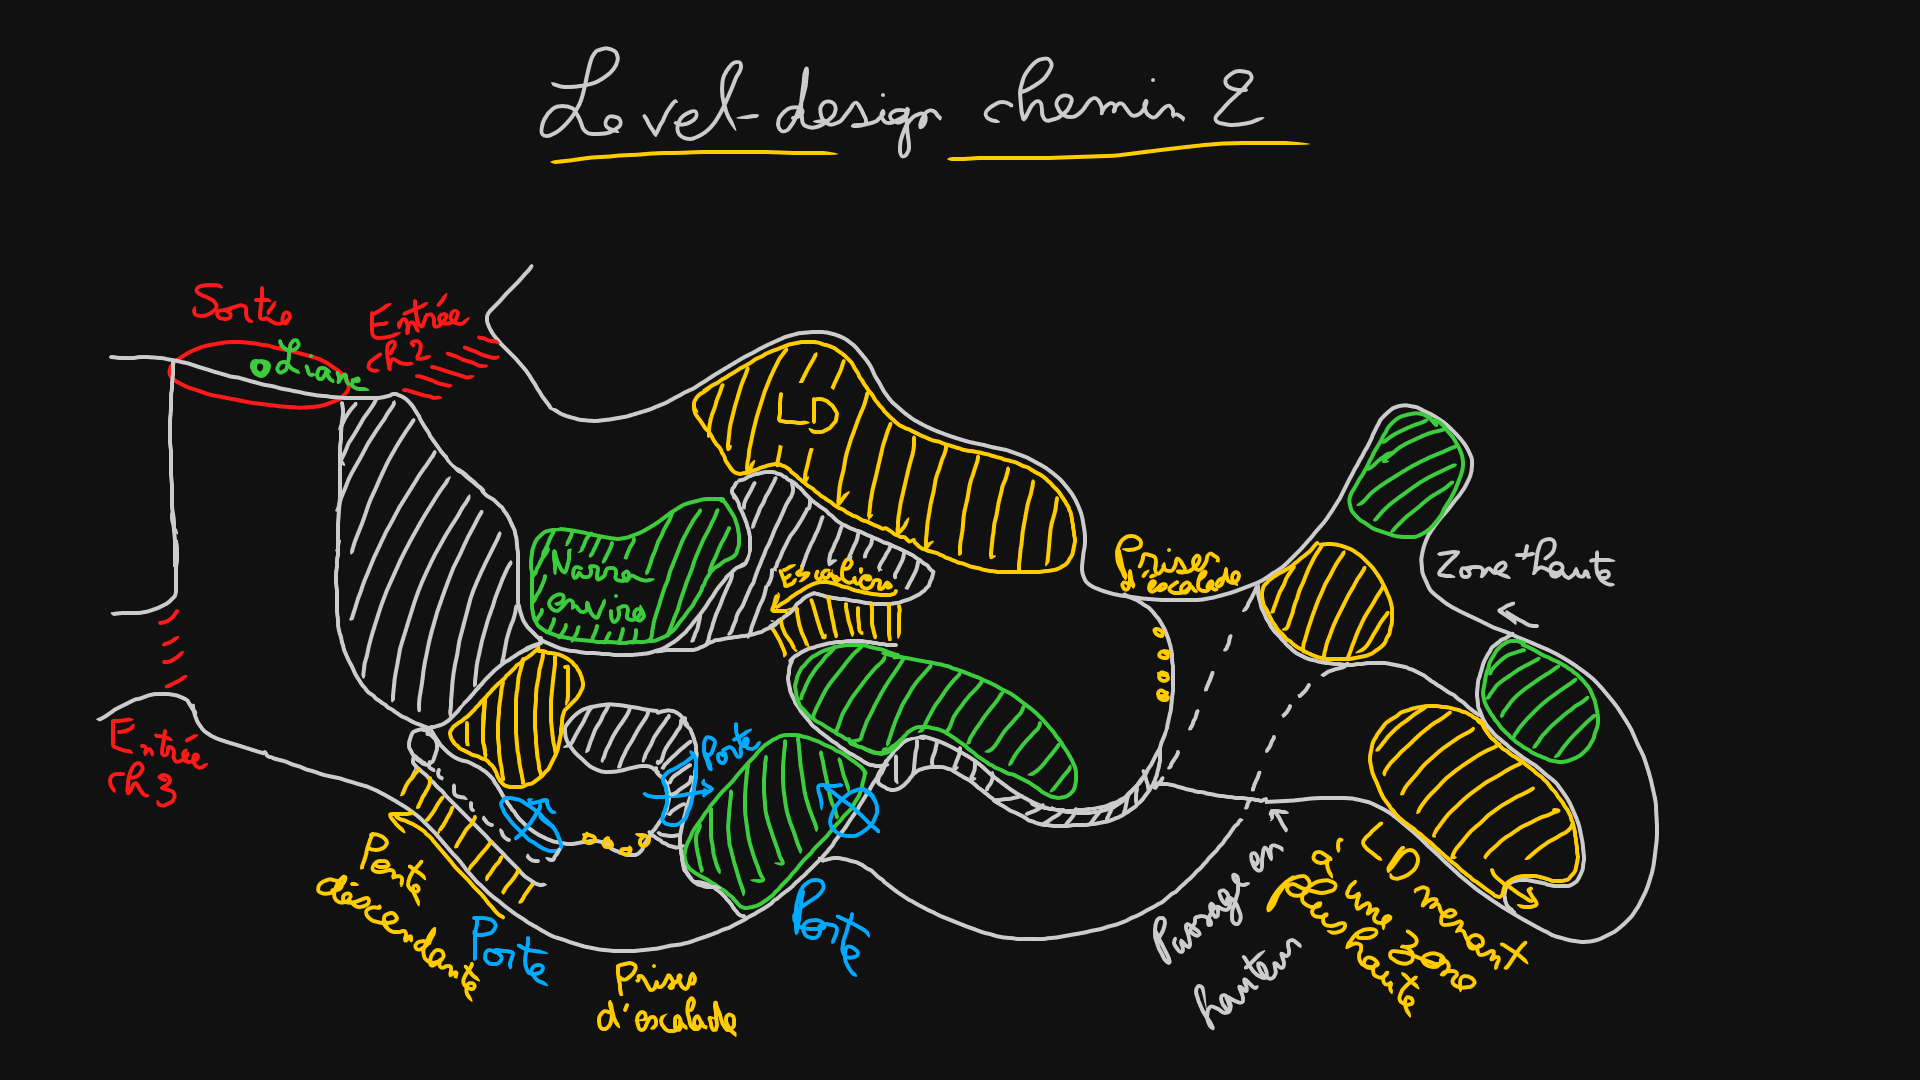 Level-design chemin 2
Sortie
Entrée
ch2
Liane
LD
Prises
d'escalade
Zone + haute
Narra
enviro
Escaliers
Entrée
ch3
Porte
Pente
déscendante
Porte
Prises
d'escalade
Porte
Passage en
hauteur
LD menant
à une zone
plus haute